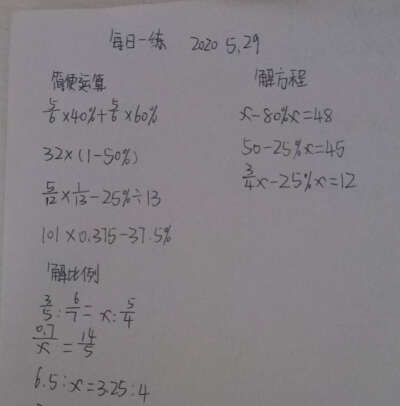 每日一练 2020 5,29
简便运算
5/6×40%+5/6×60%
32×(1-50%)
5/12×1/13-25%÷13
101×0.375-37.5%
解方程
x-80%x=48
50-25%x=45
3/4x-25%x=12
解比例
3/5:6/7=x:5/4
0.7/x=14/5
6.5:x=3.25:4